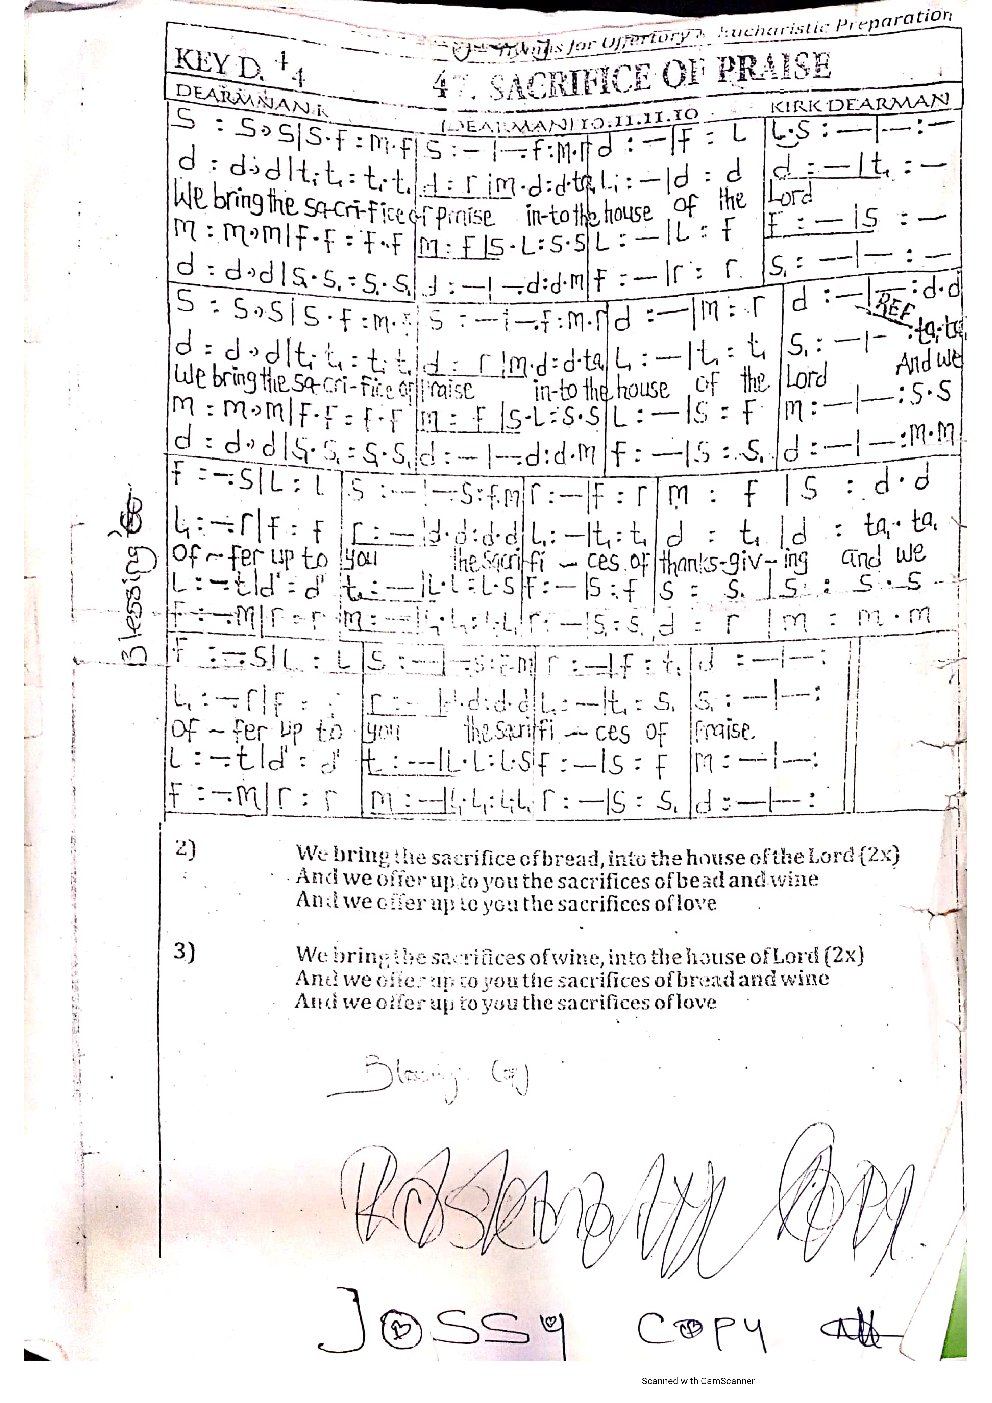 for Offertory & Eucharistic Preparation
KEY D. 4/4
47. SACRIFICE OF PRAISE
DEARMNAN K
(DEARMAN) 10.11.11.10
KIRK DEARMAN
S : S›S|S·f : m·f|S :— |—:f:m·r|d :—|f : L|L·S :—|—:—
d : d›d|t₁·t₁ : t₁·t₁|d : r|m·d:d·ta₁|L₁:—|d : d|d :—|t₁ :—
We bring the sa-cri-fice of praise in-to the house of the Lord
m : m›m|f·f : f·f|m : f|S·L:S·S|L :—|L : f|f :—|S :—
d : d›d|S₁·S₁ : S₁·S₁|d :—|—:d:d·m|f :—|r : r|S₁ :—|—:—
S : S›S|S·f : m·f|S :—|—:f:m·r|d :—|m : r|d :—|—:d·d
REF
d : d›d|t₁·t₁ : t₁·t₁|d : r|m·d:d·ta₁|L₁ :—|t₁ : t₁|S₁ :—|—:ta₁·ta₁
We bring the sa-cri-fice of praise in-to the house of the Lord And we
m : m›m|f·f : f·f|m : f|S·L:S·S|L :—|S : f|m :—|—:S·S
d : d›d|S₁·S₁ : S₁·S₁|d :—|—:d:d·m|f :—|S : S₁|d :—|—:m·m
f :—·S|L : L|S :—|—·S:f·m|r :—|f : r|m : f|S : d·d
L₁ :—·r|f : f|r :—|d·d:d·d|L₁ :—|t₁ : t₁|d : t₁|d : ta₁·ta₁
Of – fer up to you the sacrifi – ces of thanks-giv-ing and we
L :—·t|d' : d'|t₁ :—|L·L:L·S|f :—|S : f|S : S₁|S : S·S
f :—·m|r : r|m :—|L₁·L₁:L₁·L₁|r :—|S₁ : S₁|d : r|m : m·m
f :—·S|L : L|S :—|—·S:f·m|r :—|f : t₁|d :—|—:
L₁ :—·r|f :|r :—|d·d:d·d|L₁ :—|t₁ : S₁|S₁ :—|—:
Of – fer up to you the sacrifi – ces of Praise.
L :—·t|d' : d'|t :—|L·L:L·S|f :—|S : f|m :—|—:
f :—·m|r : r|m :—|L₁·L₁:L₁·L₁|r :—|S : S₁|d :—|—:
Blessing
2) We bring the sacrifice of bread, into the house of the Lord (2x)
And we offer up to you the sacrifices of bead and wine
And we offer up to you the sacrifices of love
3) We bring the sacrifices of wine, into the house of Lord (2x)
And we offer up to you the sacrifices of bread and wine
And we offer up to you the sacrifices of love
Blessing Copy
JOSSY COPY
Scanned with CamScanner